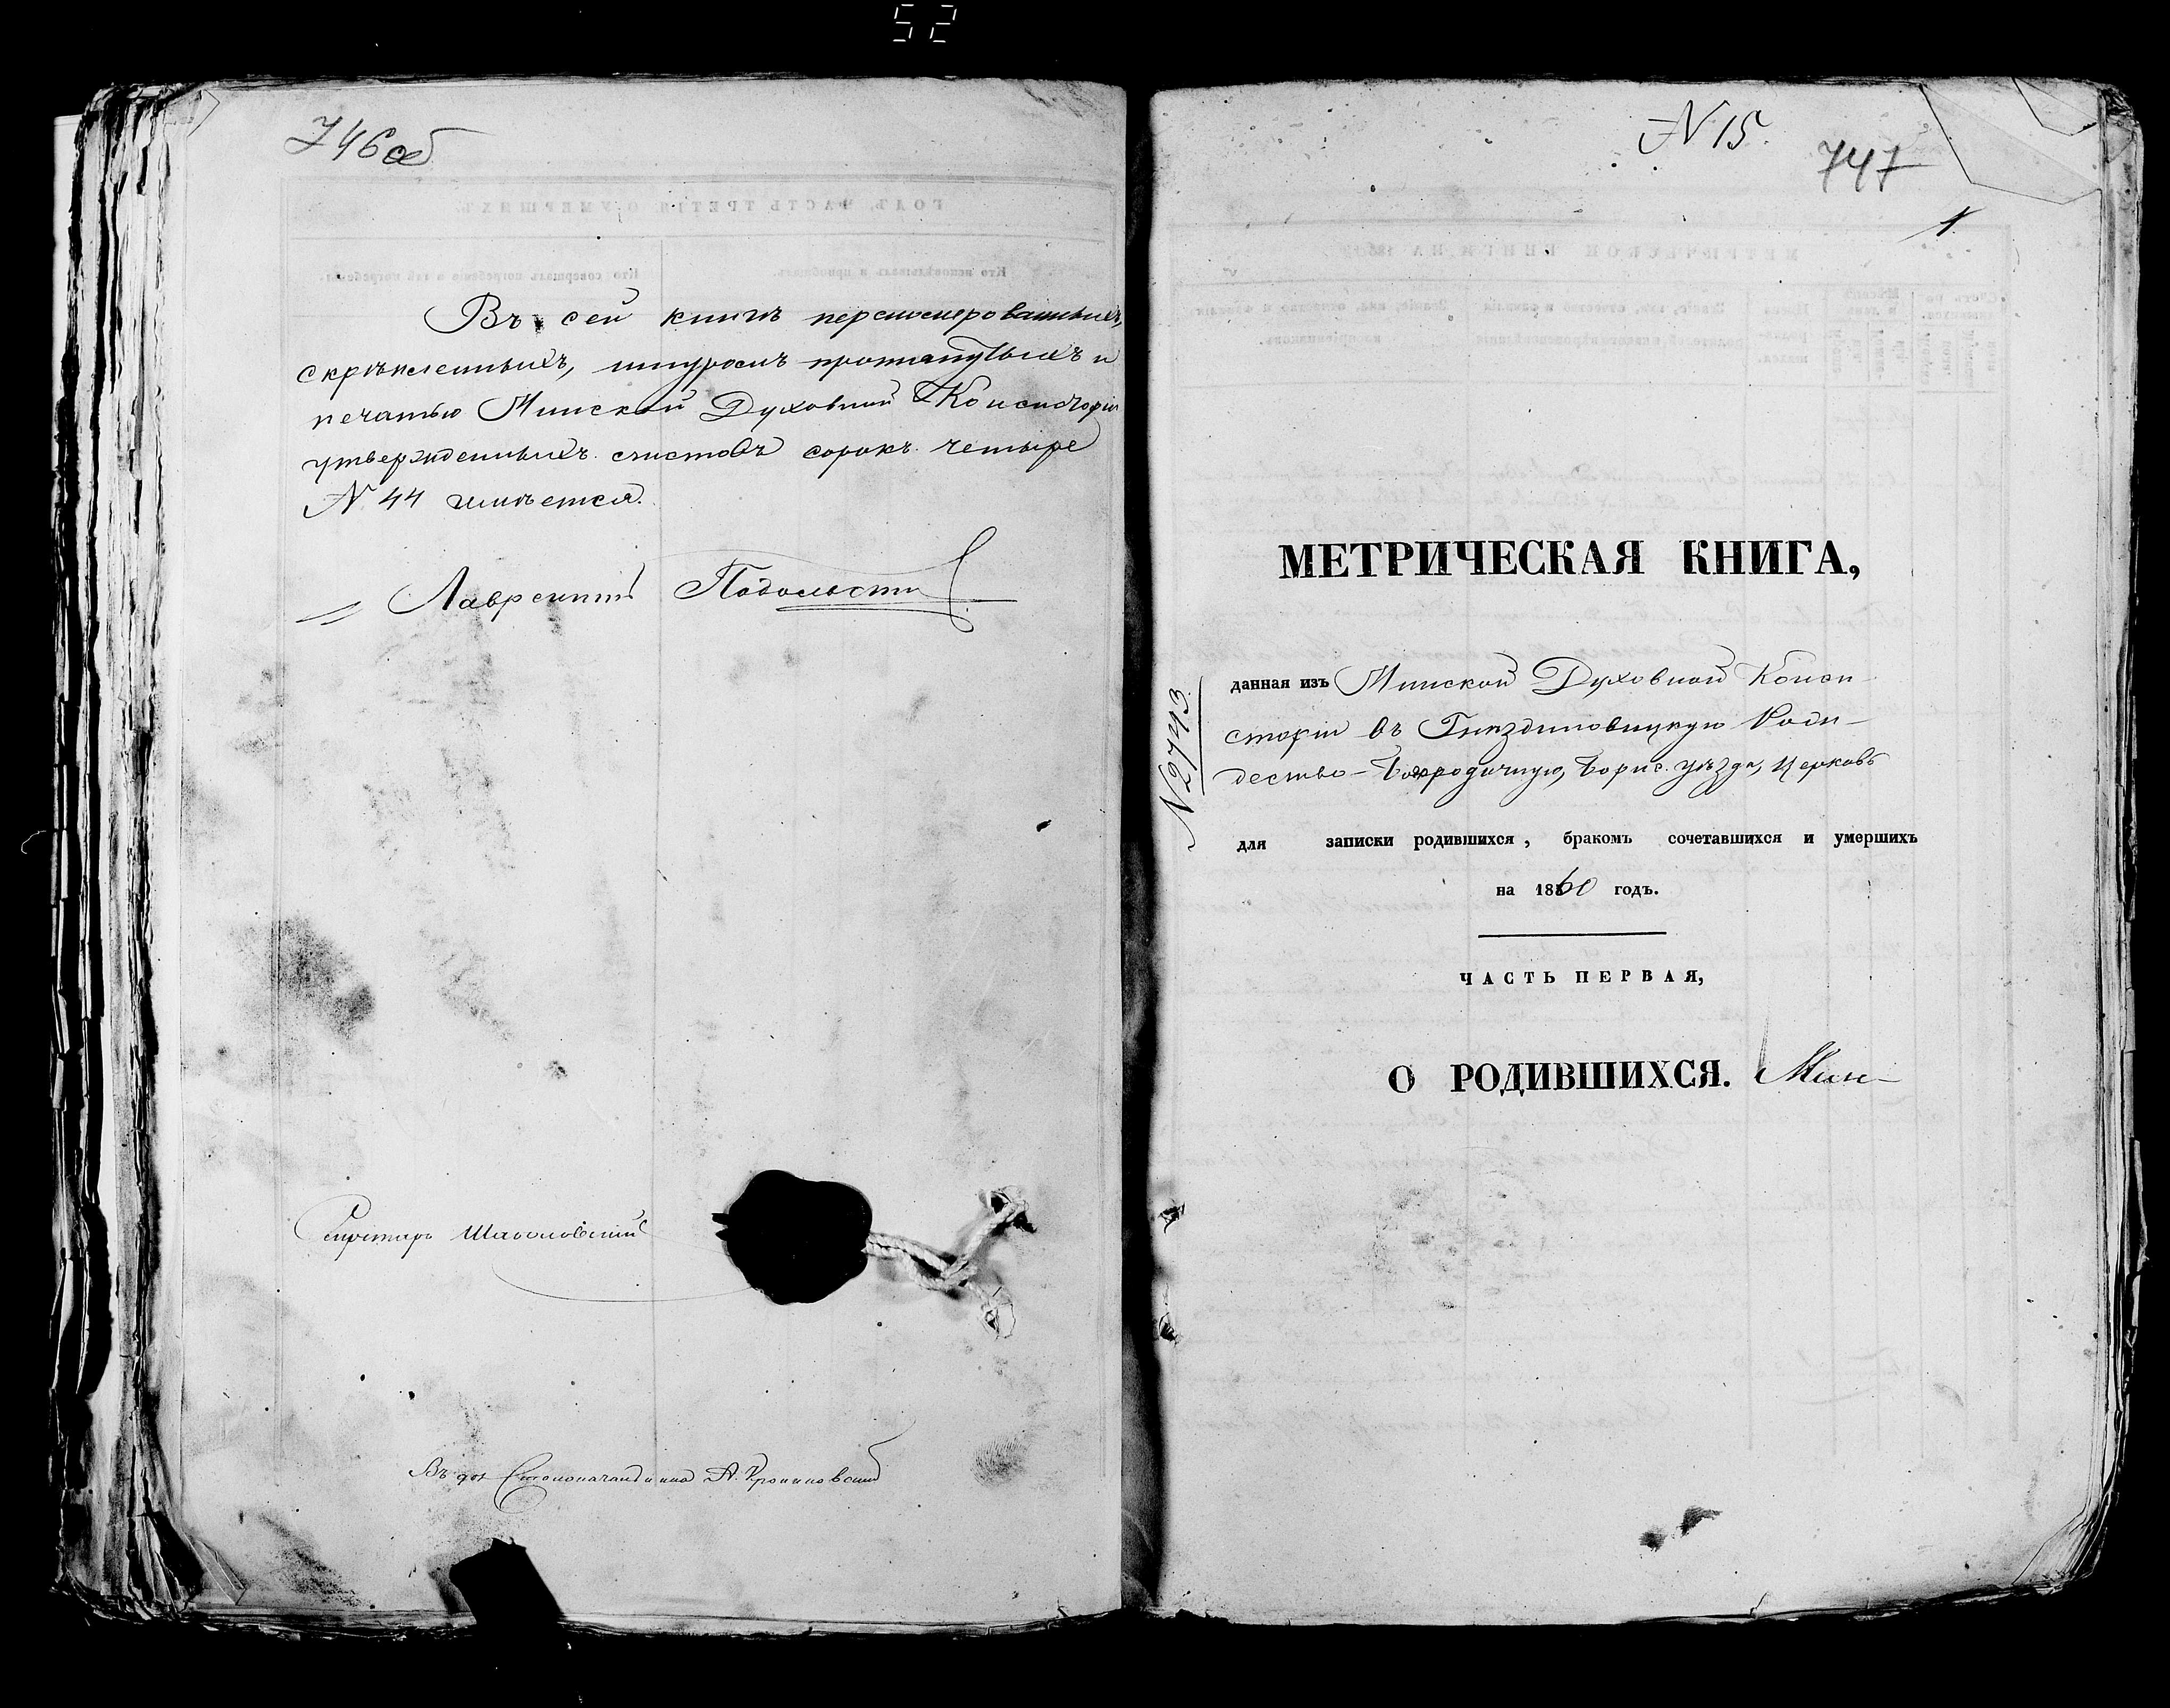 52
746об
Въ сей книгѣ перенумерованныхъ,
скрѣпленныхъ, шнуромъ протянутыхъ и
печатью Минской Духовной Консисторіи
утвержденныхъ листовъ сорокъ четыре
N 44 имѣется.
Лаврентій
Секретарь
Въ дол Столоначальника А.
N 15.
747
1
МЕТРИЧЕСКАЯ КНИГА,
N 2743.
данная изъ Минской Духовной Конси-
сторіи въ Гнездиловицкую Рож-
дество-Богородичную, Борис. уѣзда, Церковь
для записки родившихся, бракомъ сочетавшихся и умершихъ
на 1860 годъ.
ЧАСТЬ ПЕРВАЯ,
О РОДИВШИХСЯ. Мин-